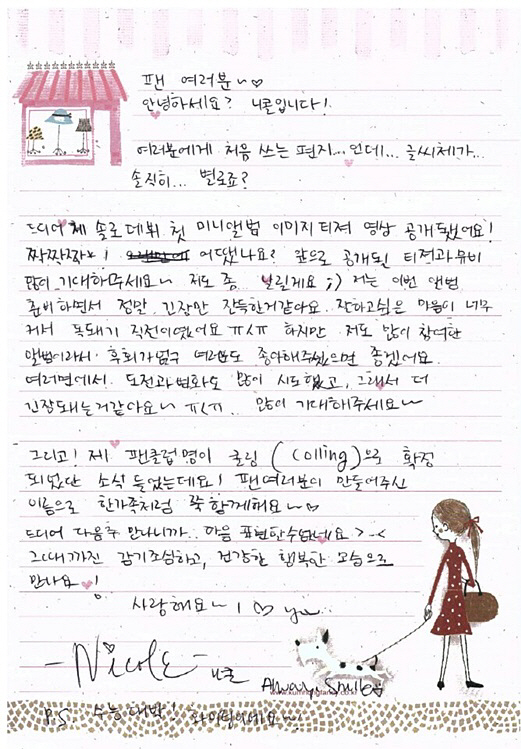 팬 여러분~♡
안녕하세요? 니콜입니다!
여러분에게 처음 쓰는 편지...인데... 글씨체가...
솔직히... 별로죠?
드디어 제 솔로데뷔 첫 미니앨범 이미지 티져 영상 공개됐어요!
짝짝짝*! 어땠나요? 앞으로 공개될 티져과 뮤비
많이 기대해주세요~ 저도 좀 날릴게요 ;) 저는 이번 앨범
준비하면서 정말 긴장만 잔득한거같아요. 잘하고싶은 마음이 너무
커서 폭돼기 직전이였어요 ㅠㅅㅠ 하지만 저도 많이 참여한
앨범이라서 후회가없구 여러분도 좋아해주셨으면 좋겠어요.
여러면에서 도전과변화도 많이 시도했고, 그래서 더
긴장돼는거같아요~ ㅠㅅㅠ.. 많이 기대해주세요~
그리고! 제 팬클럽명이 콜링 (Colling)으로 확정
되었단 소식 들었는데요! 팬여러분이 만들어주신
이름으로 한가족처럼 쭉 함께해요~♡
드디어 다음주 만나니까.. 마음 표현한수있네요 >-<
그때까진 감기조심하고, 건강한 행복한 모습으로
만나요♥!
사랑해요~ I ♡ you..
-Nicole- 니콜
Always Smile
P.S. 수능 대박! 화이팅이에요~!